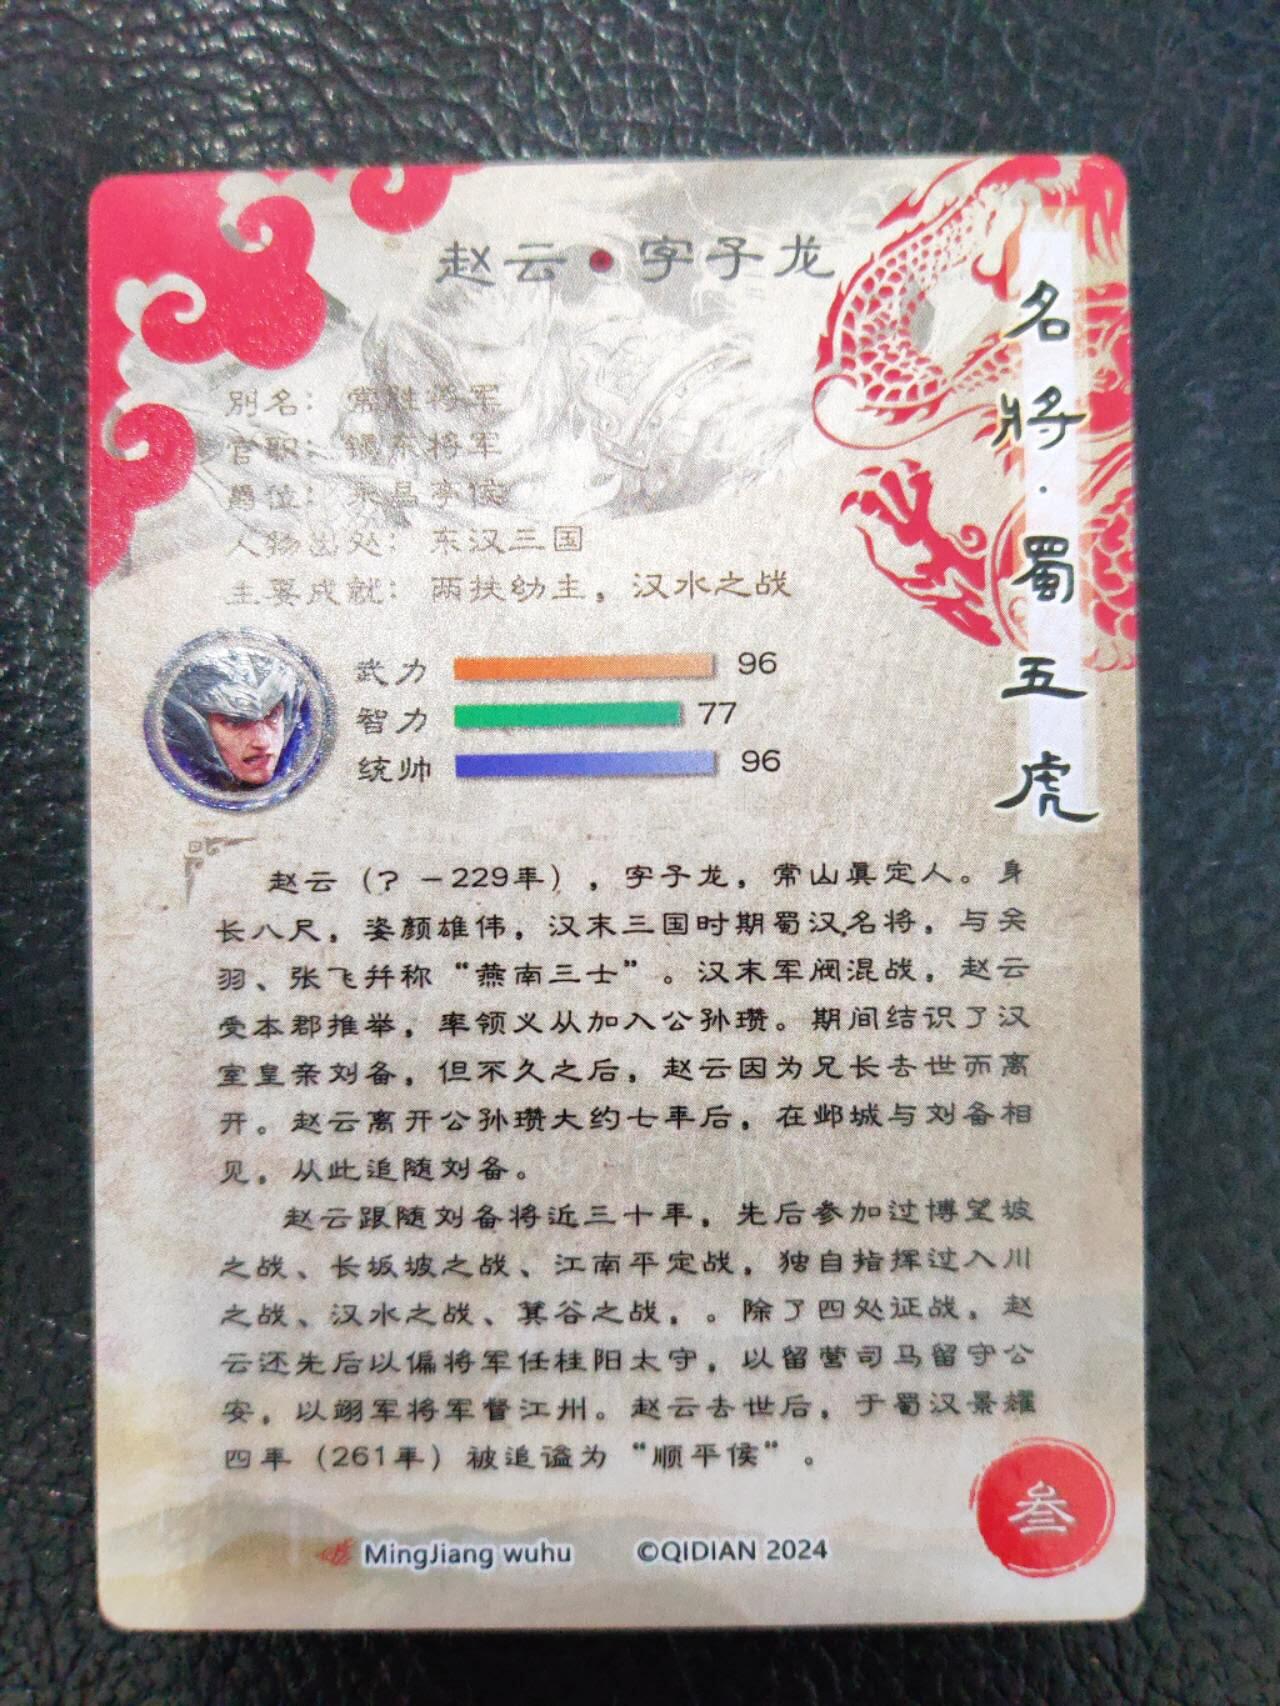 赵云•字子龙
名将·蜀五虎
别名：常胜将军
官职：镇东将军
爵位：永昌亭侯
人物出处：东汉三国
主要成就：两扶幼主，汉水之战
武力 96
智力 77
统帅 96
赵云（？－229年），字子龙，常山真定人。身
长八尺，姿颜雄伟，汉末三国时期蜀汉名将，与关
羽、张飞并称“燕南三士”。汉末军阀混战，赵云
受本郡推举，率领义从加入公孙瓒。期间结识了汉
室皇亲刘备，但不久之后，赵云因为兄长去世而离
开。赵云离开公孙瓒大约七年后，在邺城与刘备相
见，从此追随刘备。
赵云跟随刘备将近三十年，先后参加过博望坡
之战、长坂坡之战、江南平定战，独自指挥过入川
之战、汉水之战、箕谷之战，。除了四处征战，赵
云还先后以偏将军任桂阳太守，以留营司马留守公
安，以翊军将军督江州。赵云去世后，于蜀汉景耀
四年（261年）被追谥为“顺平侯”。
叁
MingJiang wuhu ©QIDIAN 2024